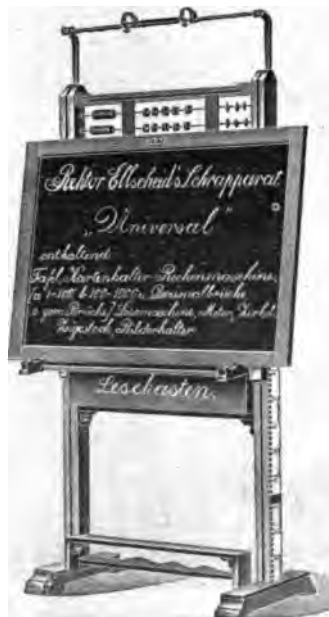 Rektor Ellschad's Lehrapparat
„Universal”
enthaltend
Tafel, Kartenhalter, Rechenmaschine,
(a 1-100, b 100-1000, Dezimalbrüche
gem. Brüche) Lesemaschine, Meter, Zirkel,
Zeigestock, Bilderhalter
Lesekasten.